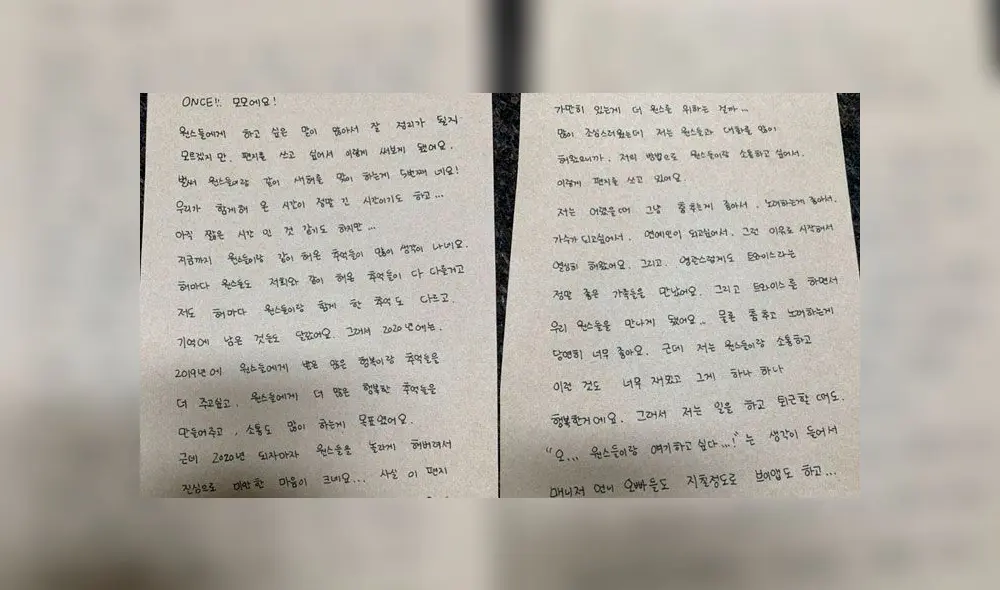 ONCE!! 모모에요!
원스들에게 하고 싶은 말이 많아서 잘 정리가 될지
모르겠지만, 편지를 쓰고 싶어서 이렇게 써보게 됐어요.
벌써 원스들이랑 같이 새해를 맞이 하는게 5번째 네요!
우리가 함께해 온 시간이 정말 긴 시간이기도 하고...
아직 짧은 시간 인 것 같기도 하지만...
지금까지 원스들이랑 같이 해온 추억들이 많이 생각이 나네요.
해마다 원스들도 저희와 같이 해온 추억들이 다 다를거고
저도 해마다 원스들이랑 함께 한 추억도 다르고.
기억에 남은 것들도 달랐어요. 그래서 2020년에는.
2019년에 원스들에게 받은 많은 행복이랑 추억들을
더 주고싶고, 원스들에게 더 많은 행복한 추억들을
만들어주고, 소통도 많이 하는게 목표였어요.
근데 2020년 되자마자 원스들을 놀라게 해버려서
진심으로 미안한 마음이 크네요... 사실 이 편지
가만히 있는게 더 원스를 위하는 걸까...
많이 조심스러웠는데 저는 원스들과 대화를 많이
해왔으니까, 저의 방법으로 원스들이랑 소통하고 싶어서.
이렇게 편지를 쓰고 있어요.
저는 어렸을때 그냥 춤추는게 좋아서, 노래하는게 좋아서.
가수가 되고싶어서, 연예인이 되고싶어서. 그런 이유로 시작해서
열심히 해왔어요. 그리고. 영광스럽게도 트와이스라는
정말 좋은 가족들을 만났어요. 그리고 트와이스를 하면서
우리 원스들을 만나게 됐어요.. 물론 춤추고 노래하는게
당연히 너무 좋아요. 근데 저는 원스들이랑 소통하고
이런 것도 너무 재밌고 그게 하나 하나
행복한거예요. 그래서 저는 일을 하고 퇴근할 때도.
"오... 원스들이랑 얘기하고 싶다...!" 는 생각이 들어서
매니저 언니 오빠들도 지칠정도로 브이앱도 하고...